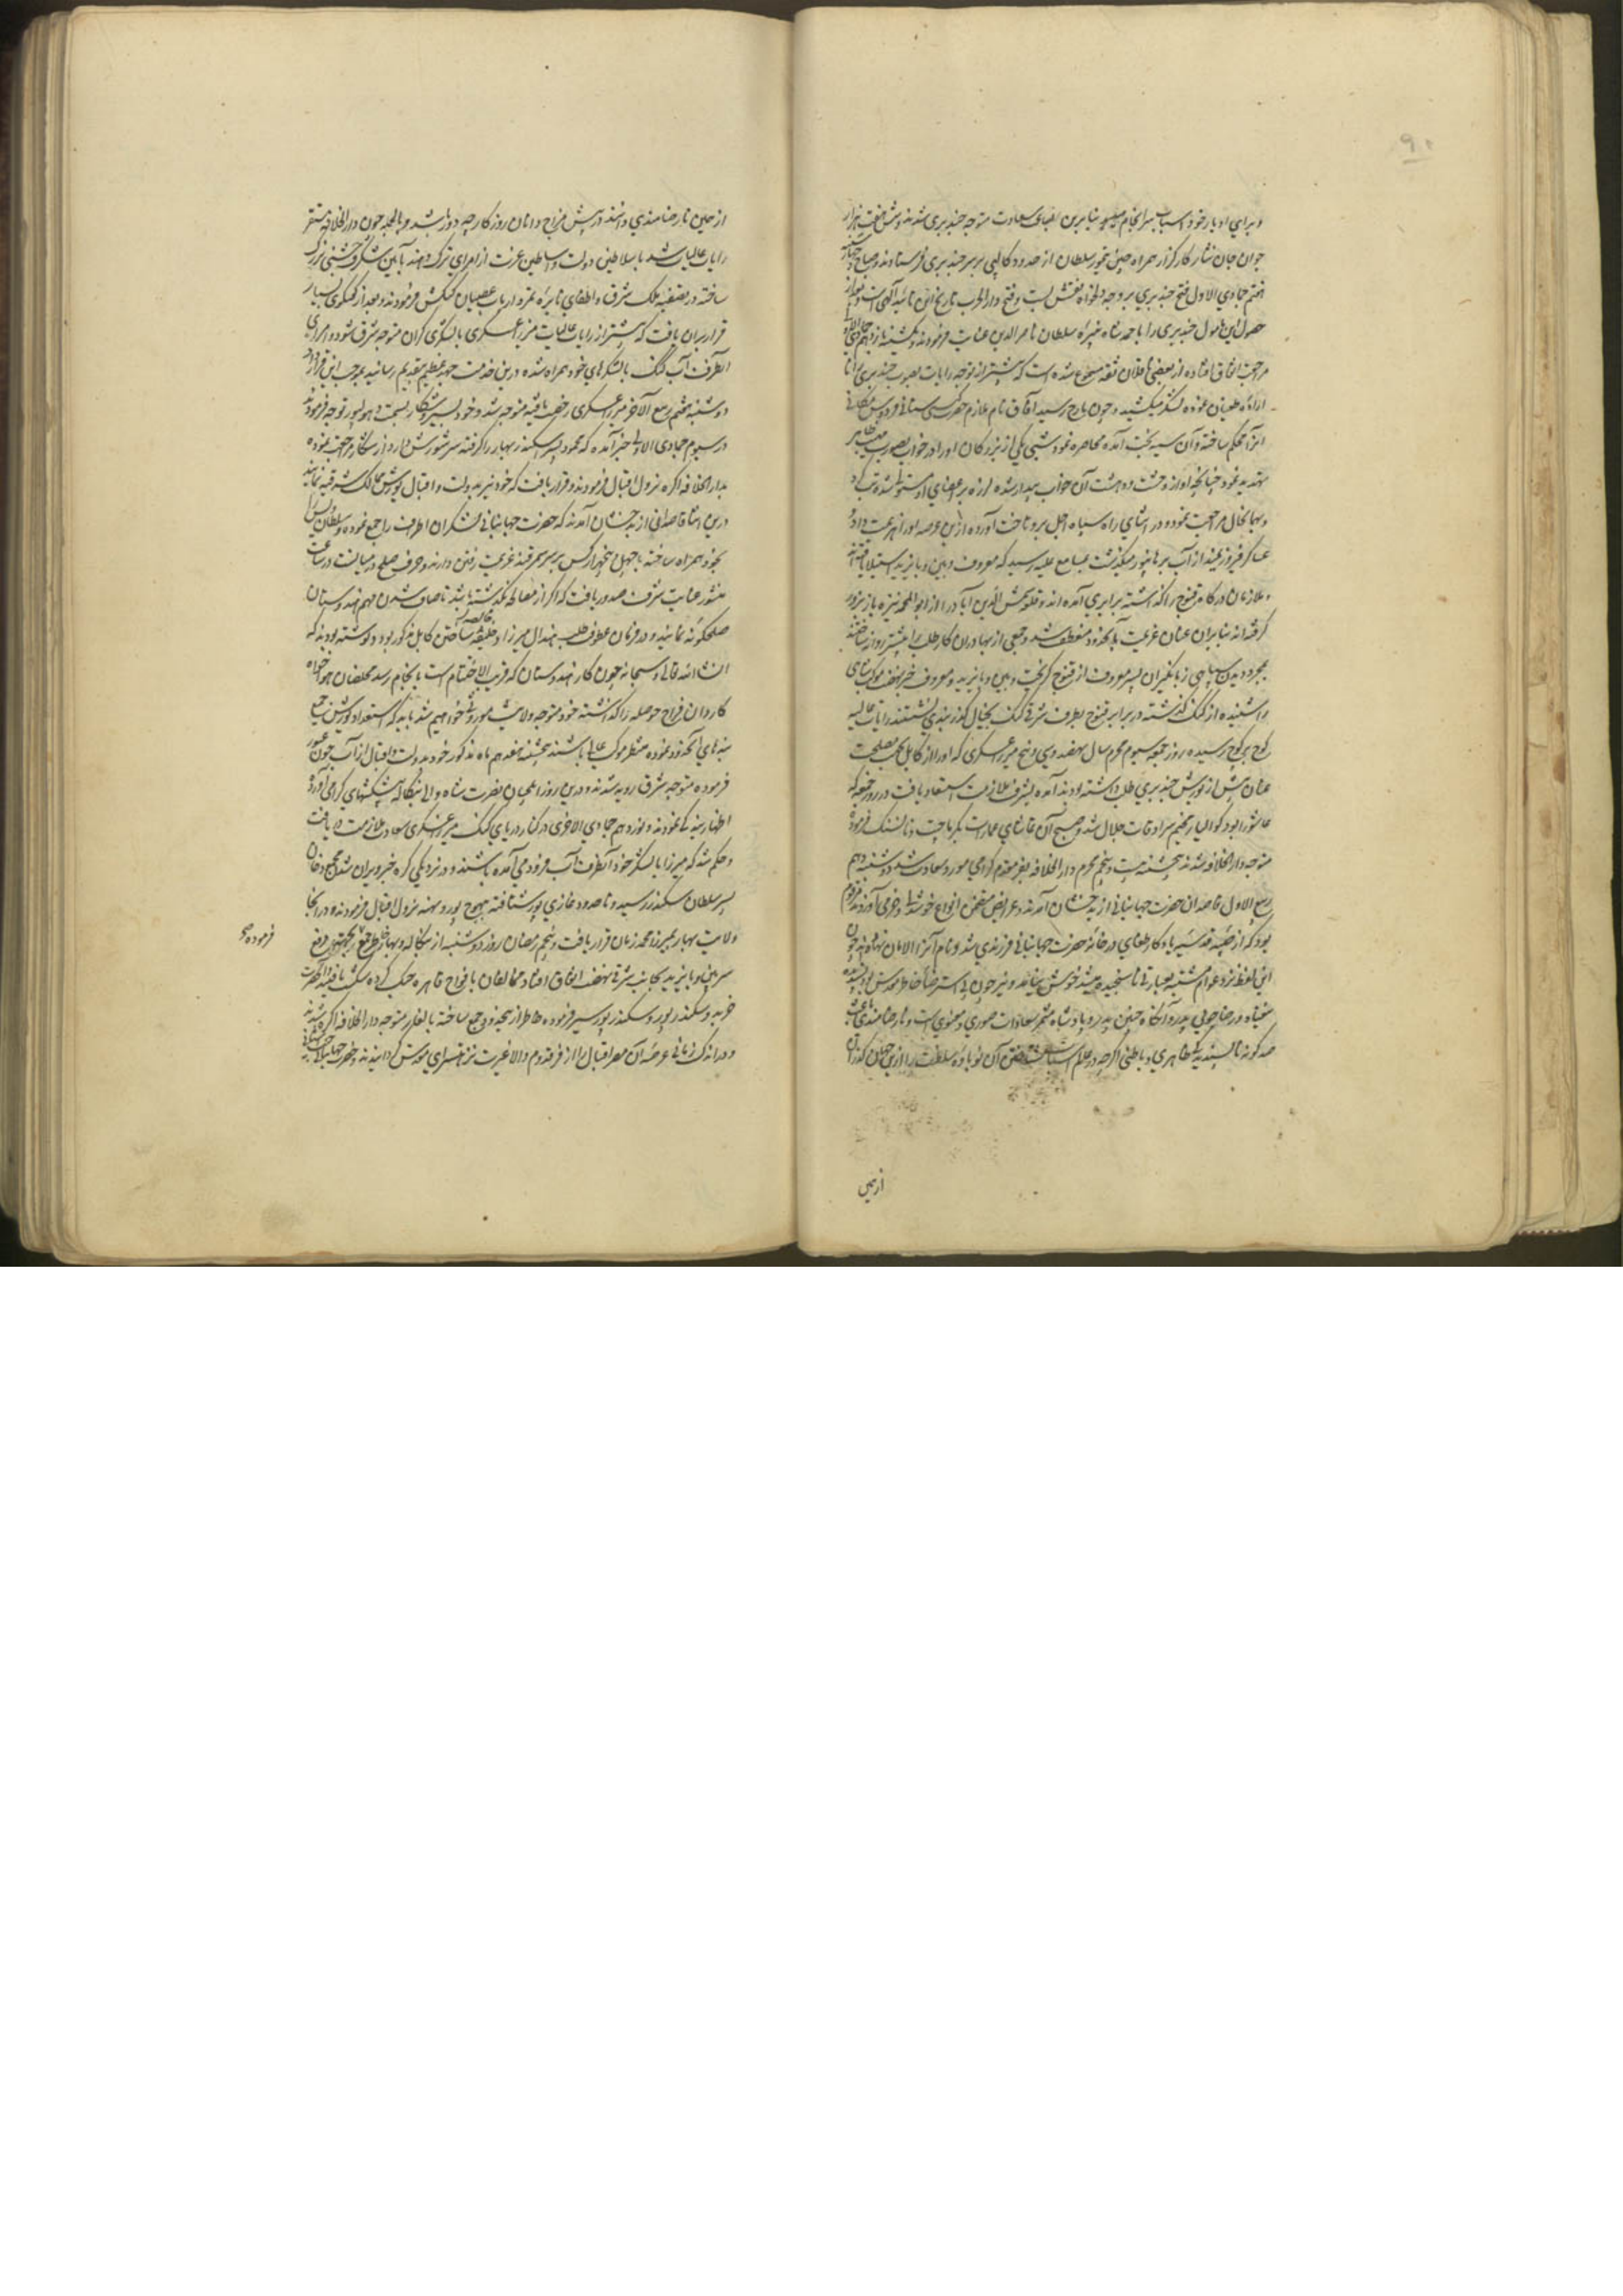 ۹۰
و برای ادبار خود اسباب سرانجام میشود بنابرین بصدای سعادت متوجه چندیری شدند و شش هفت هزار
جوان جان نثار کارگزار همراه چین تیمور سلطان از حدود کالپی بر سر چندیری فرستادند و صباح چهارشنبه
هفتم جمادی الاول فتح چندیری بروجه دلخواه نقش بست و فتح دارالحرب تاریخ این تائید آلهی است و بعد از
حصول این مامول چندیری را باحمد شاه نبیره سلطان ناصرالدین عنایت فرمودند و یکشنبه یازدهم جمادی الاول
مراجعت اتفاق افتاده از بعضی ناقلان ثقه مسموع شده است که پیشتر از توجه رایات بصوب چندیری رانا
اراده طغیان نموده لشکر میکشید و چون بایرج رسید آفاق نام ملازم حضرت گیتی ستانی فردوس مکانی
آنرا محکم ساخته و آن سیه بخت آمده محاصره نمود شبی یکی از بزرگان او را در خواب بصورت مهیب ظاهر
تهدید نمود چنانچه او از وحشت و دهشت آن خواب بیدار شده لرزه بر اعضای او مستولی شده تب کرد
و بهمان حال مراجعت نمود و در اثنای راه سپاه اجل برو تاخت آورده ازین عرصه او را هزیمت داد و
عساکر فیروزمند از آب برهانپور میگذشت بمسامع علیه رسید که معروف و ببن و بایزید استیلا یافته اند
و ملازمان درگاه قنوج را گذاشته برابری آمده اند و قلعه شمس آباد را از ابوالمحمد نیزه باز بزور
گرفته اند بنابران عنان عزیمت بآنحدود منعطف شد و جمعی از بهادران کار طلب را پیشتر روانه ساختند
بمجرد دیدن سپاهی زبانگیران پسر معروف از قنوج گریخت و ببن و بایزید و معروف خبر نهضت موکب شاهی
را شنیده از گنگ گذشته در برابر قنوج بطرف شرقی گنگ بخیال گذربندی نشستند رایات عالیه
کوچ بر کوچ رسیده روز جمعه سیوم محرم سال نهصد و سی و پنج میرزا عسکری که او را از کابل بجهت مصلحت
ملتان پیش از یورش چندیری طلب داشته بودند آمده بشرف ملازمت استسعاد یافت در روز جمعه که
عاشورا بود گوالیار مخیم سرادقات جلال شد و صبح آن تماشای عمارات بکرماجیت و مانسنگ فرموده
متوجه دارالخلافه شدند پنجشنبه بیست و پنجم محرم دارالخلافه بفر مقدم گرامی مورد سعادت شد دوشنبه دهم
ربیع الاول قاصدان حضرت جهانبانی از بدخشان آمدند و عرایض متضمن انواع خوشدلی و خرمی آوردند مرقوم
بود که از صبیه قدسیه یادگار طغای در خانه حضرت جهانبانی فرزندی شد و نام آنرا الامان نهاده اند چون
این لفظ نزد عوام مشتبه بعبارتی ناسنجیده میشد خوش نیامد و نیز چون بی استرضای خاطر مقدس بود پسندیده
نیفتاد و رضاجوئی پدر و آنگاه چنین پدر و پادشاه مثمر سعادات صوری و معنوی است و نارضامندی باعث
صد گونه ناپسندیدگی ظاهری و باطنی اگرچه در عالم اسباب رفتن آن نوباوه سلطنت را ازین جهان گذران
ازهمین
از همین نارضامندی دانند در پیش مزاج دانان روزگار چه دور باشد و بالجمله چون دارالخلافه مستقر
رایات عالیات شد با سلاطین دولت و اساطین عزت از امرای ترک و هند بآیین شگرف جشنی بزرگ
ساخته در تصفیه ملک شرق و اطفای نایره تمرد ارباب عصیان کنکش فرمودند و بعد از گفتگوی بسیار
قرار بران یافت که پیشتر از رایات عالیات میرزا عسکری با لشکری گران متوجه شرق شود و امرای
آنطرف آب گنگ با لشکرهای خود همراه شده درین خدمت جهد عظیم بتقدیم رسانند بموجب این قرارداد
دوشنبه هفتم ربیع الآخر میرزا عسکری رخصت یافته متوجه شد و خود بسیر و شکار بسمت دهولپور توجه فرمودند
در سیوم جمادی الاولی خبر آمد که محمود پسر سکندر بهار را گرفته سر شورش دارد از شکار مراجعت نموده
بدارالخلافه اگره نزول اقبال فرمودند و قرار یافت که خود نیز بدولت و اقبال یورش ممالک شرقیه نمایند
درین اثنا قاصدانی از بدخشان آمدند که حضرت جهانبانی لشکران اطراف را جمع نموده و سلطان ویس را
بخود همراه ساخته با چهل پنجاه هزار کس بر سر سمرقند عزیمت رفتن دارند و حرف صلح در میانست در ساعت
منشور عنایت شرف صدور یافت که اگر از مصالحه نگذشته باشد تا صاف شدن مهم هندوستان
صلحگونه نمایند و در فرمان عطوفت طلب هندال میرزا و خالصه ساختن کابل مذکور بود و نوشته بودند که
انشاالله تعالی و سبحانه چون کار هندوستان که قریب الاختتام است بانجام رسد مخلصان هواخواه
کاردان فراخ حوصله را گذاشته خود متوجه ولایت موروثی خواهیم شد باید که استعداد یورش جمیع
بندهای آنحدود نموده منتظر موکب عالی باشند پنجشنبه هفدهم ماه مذکور خود بدولت و اقبال از آب جون عبور
فرموده متوجه شرق رویه شدند و درین روزها ایلچیان نصرت شاه والی بنگاله پیشکشهای گرامی آورده
اظهار بندگی نمودند و نوزدهم جمادی الاخری در کنار دریای گنگ میرزا عسکری سعادت ملازمت دریافت
و حکم شد که میرزا با لشکر خود از آنطرف آب فرود می آمده باشند و در نزدیکی کره خبر ویران شدن محمود خان
پسر سلطان سکندر رسید و تا حدود غازی پور شتافته بهوجپور و بهیه نزول اقبال فرمودند و در آنجا
ولایت بهار بمیرزا محمد زمان قرار یافت و پنجم رمضان روز دوشنبه از بنگاله و بهار خاطر جمع فرموده بجهت دفع
شر ببن و بایزید بجانب شرقی نهضت اتفاق افتاد مخالفان با افواج قاهره جنگ کرده شکست یافتند آنحضرت
خرید و سکندرپور و سکندرپور سیر فرموده خاطر از آنحدود جمع ساخته بایلغار متوجه دارالخلافه اگره شدند
و در اندک زمانی عرصه آن مصر اقبال را از فر قدوم والا غیرت نزهتسرای قدس گردانیدند و حضرت جهانبانی جنت آشیانی
فرموده صح